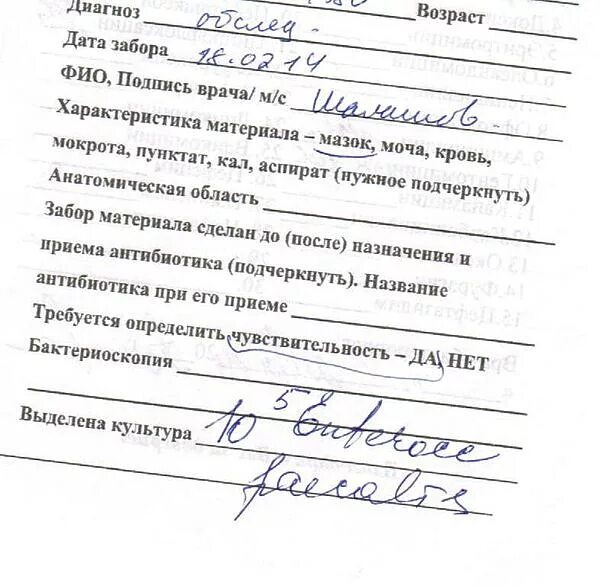 Диагноз обслед. Возраст
Дата забора 18.02.14
ФИО, Подпись врача/ м/с
Характеристика материала – мазок, моча, кровь,
мокрота, пунктат, кал, аспират (нужное подчеркнуть)
Анатомическая область
Забор материала сделан до (после) назначения и
приема антибиотика (подчеркнуть). Название
антибиотика при его приеме
Требуется определить чувствительность – ДА, НЕТ
Бактериоскопия
Выделена культура 10 5 Enterococc
faecalis